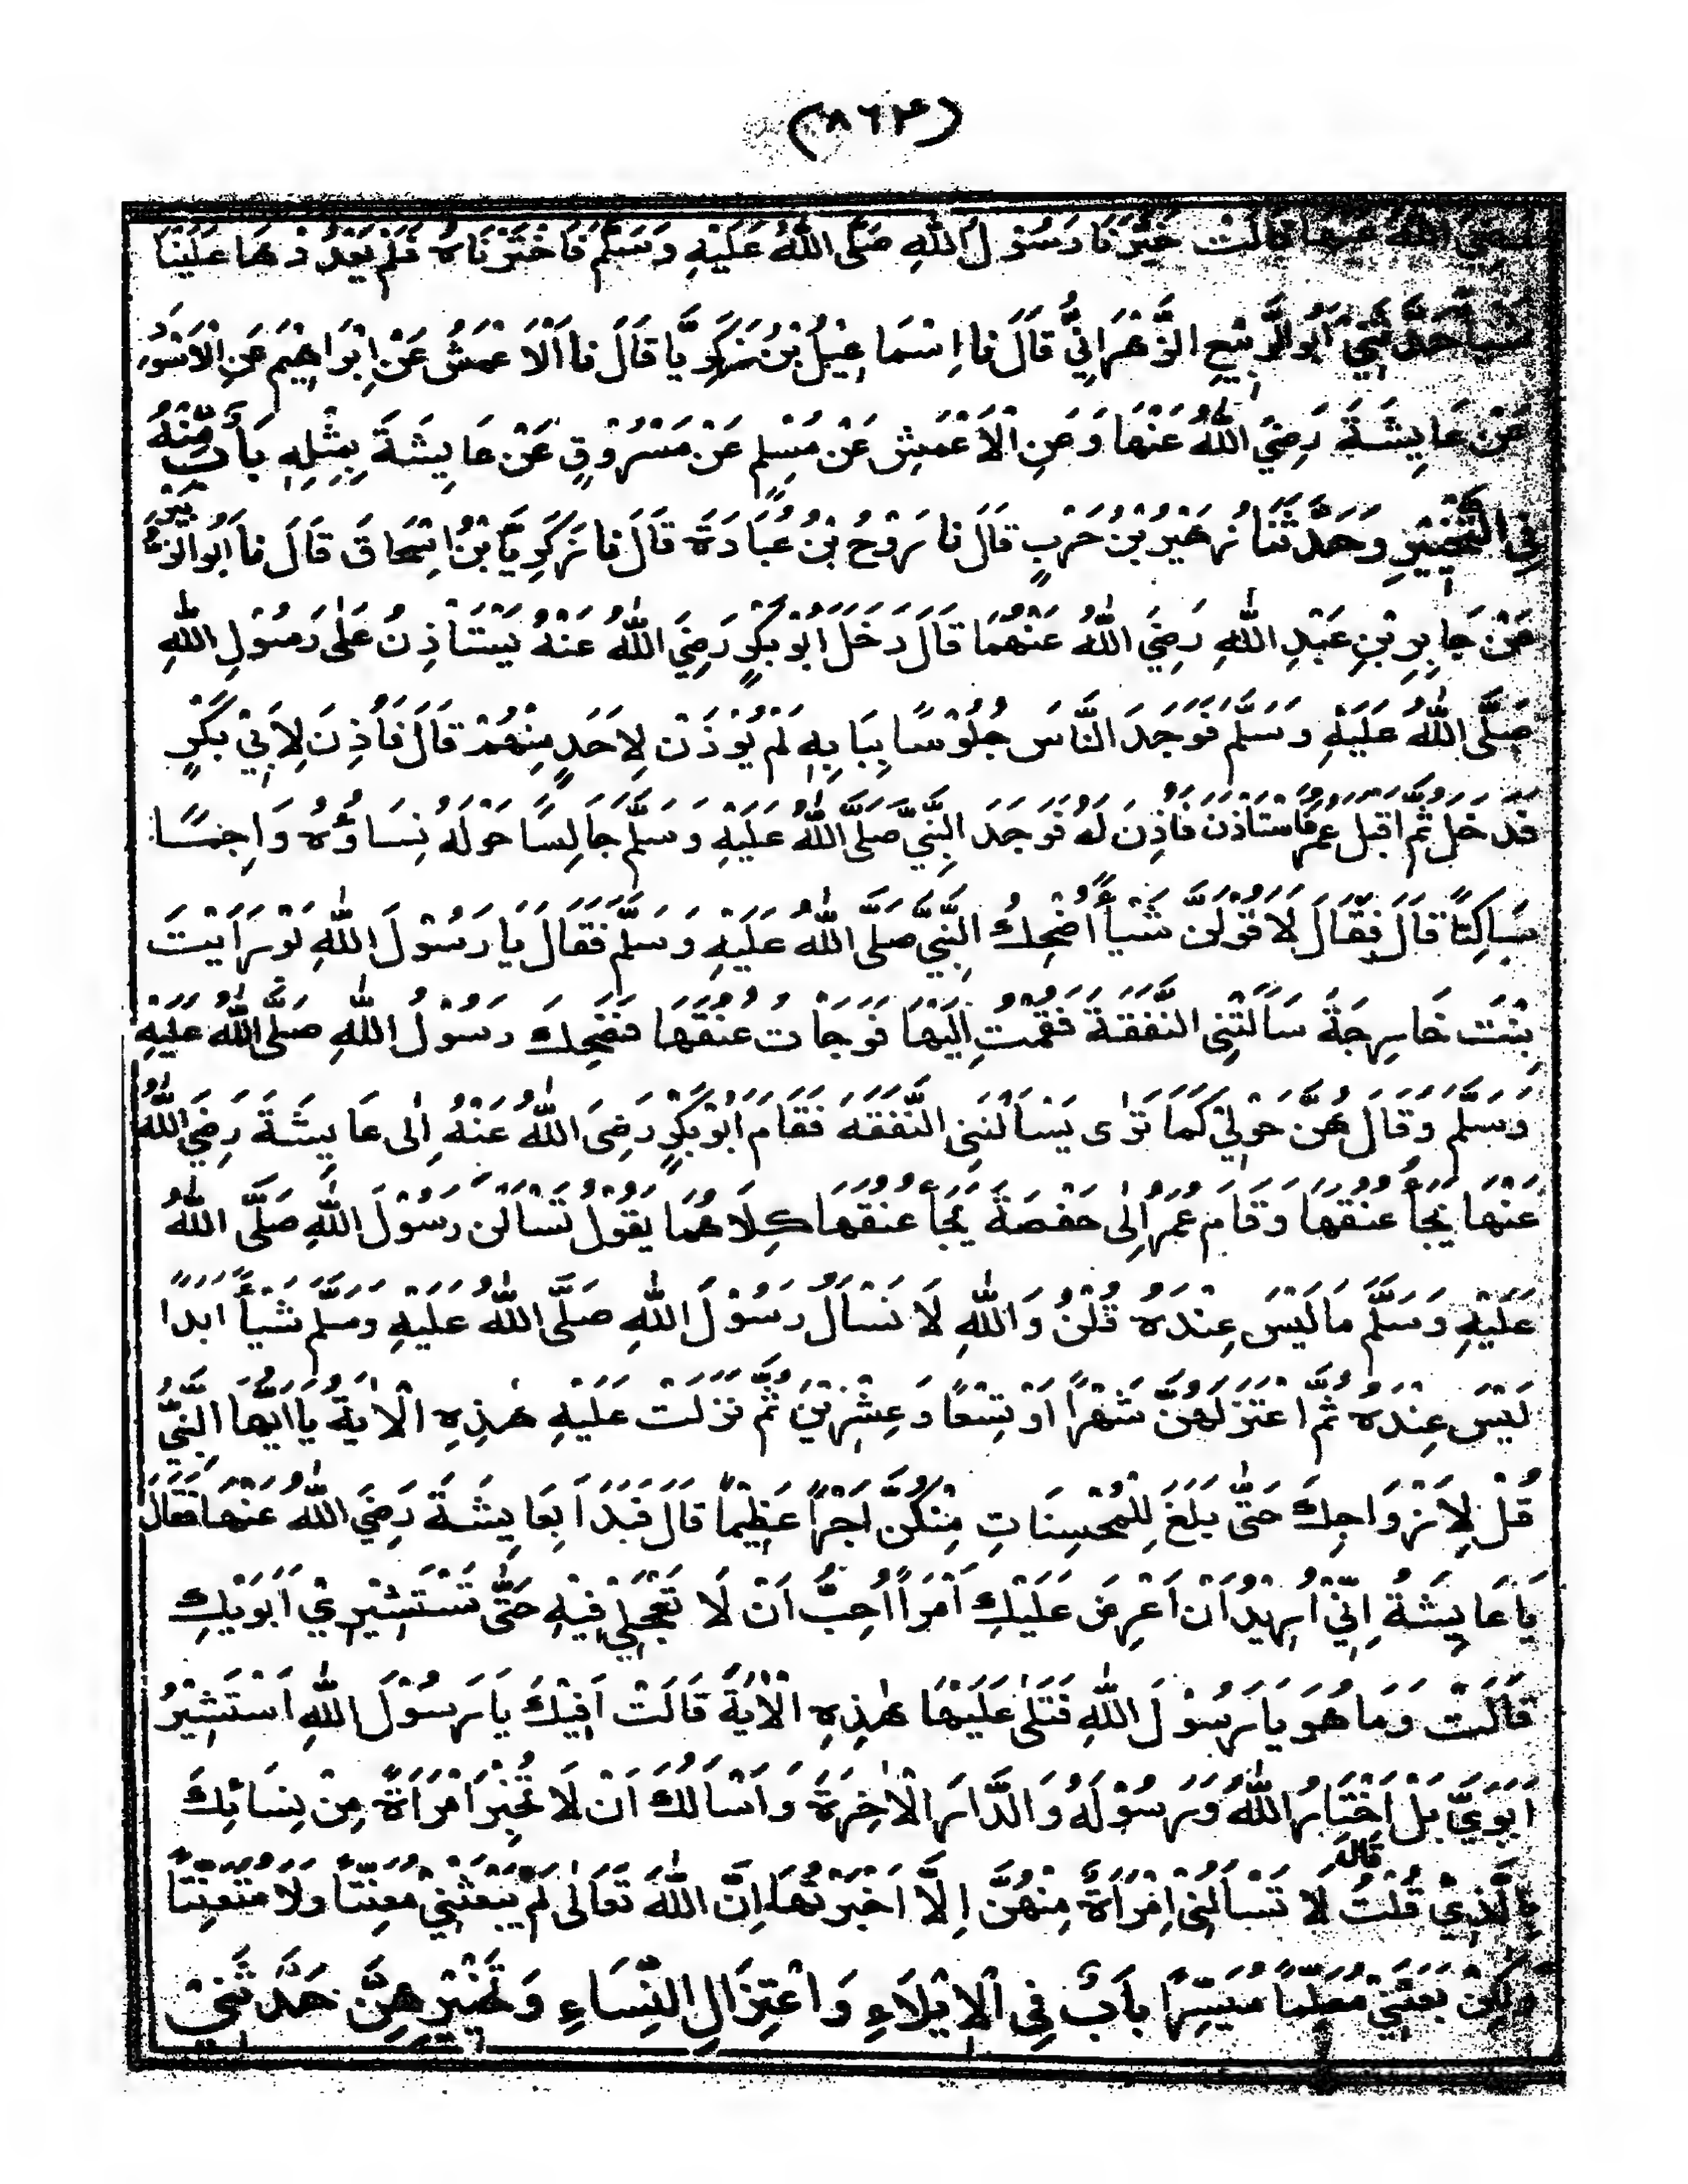 (٨٦٣)
رَضِيَ اللهُ عَنْهَا قَالَتْ خَيَّرَنَا رَسُوْلُ اللهِ صَلَّى اللهُ عَلَيْهِ وَسَلَّمَ فَاخْتَرْنَاهُ فَلَمْ يَعْدُدْهَا عَلَيْنَا
شَيْأً حَدَّثَنِيْ اَبُو الرَّبِيْعِ الزَّهْرَانِيُّ قَالَ نَا اِسْمَاعِيْلُ بْنُ زَكَرِيَّا قَالَ نَا اَلْاَعْمَشُ عَنْ اِبْرَاهِيْمَ عَنِ الْاَسْوَدِ
عَنْ عَايِشَةَ رَضِيَ اللهُ عَنْهَا وَعَنِ الْاَعْمَشِ عَنْ مُسْلِمٍ عَنْ مَسْرُوْقٍ عَنْ عَايِشَةَ بِمِثْلِهِ بَابٌ مِّنْهُ
فِي التَّخْيِيْرِ وَحَدَّثَنَا زُهَيْرُ بْنُ حَرْبٍ قَالَ نَا رَوْحُ بْنُ عُبَادَةَ قَالَ نَا زَكَرِيَّا بْنُ اِسْحَاقَ قَالَ نَا اَبُو الزُّبَيْرِ
عَنْ جَابِرِ بْنِ عَبْدِ اللهِ رَضِيَ اللهُ عَنْهُمَا قَالَ دَخَلَ اَبُوْ بَكْرٍ رَضِيَ اللهُ عَنْهُ يَسْتَاْذِنُ عَلٰى رَسُوْلِ اللهِ
صَلَّى اللهُ عَلَيْهِ وَسَلَّمَ فَوَجَدَ النَّاسَ جُلُوْسًا بِبَابِهِ لَمْ يُوْذَنْ لِاَحَدٍ مِنْهُمْ قَالَ فَاُذِنَ لِاَبِيْ بَكْرٍ
فَدَخَلَ ثُمَّ اَقْبَلَ عُمَرُ فَاسْتَاْذَنَ فَاُذِنَ لَهُ فَوَجَدَ النَّبِيَّ صَلَّى اللهُ عَلَيْهِ وَسَلَّمَ جَالِسًا حَوْلَهُ نِسَاؤُهُ وَاجِمًا
سَاكِتًا قَالَ فَقَالَ لَاَقُوْلَنَّ شَيْأً اُضْحِكُ النَّبِيَّ صَلَّى اللهُ عَلَيْهِ وَسَلَّمَ فَقَالَ يَا رَسُوْلَ اللهِ لَوْ رَاَيْتَ
بِنْتَ خَارِجَةَ سَاَلَتْنِى النَّفَقَةَ فَقُمْتُ اِلَيْهَا فَوَجَاْتُ عُنُقَهَا فَضَحِكَ رَسُوْلُ اللهِ صَلَّى اللهُ عَلَيْهِ
وَسَلَّمَ وَقَالَ هُنَّ حَوْلِيْ كَمَا تَرٰى يَسْاَلْنَنِى النَّفَقَهَ فَقَامَ اَبُوْ بَكْرٍ رَضِىَ اللهُ عَنْهُ اِلٰى عَايِشَةَ رَضِيَ اللهُ
عَنْهَا يَجَأُ عُنُقَهَا وَقَامَ عُمَرُ اِلٰى حَفْصَةَ يَجَأُ عُنُقَهَا كِلَاهُمَا يَقُوْلُ تَسْاَلْنَ رَسُوْلَ اللهِ صَلَّى اللهُ
عَلَيْهِ وَسَلَّمَ مَا لَيْسَ عِنْدَهُ قُلْنَ وَاللهِ لَا نَسْاَلُ رَسُوْلَ اللهِ صَلَّى اللهُ عَلَيْهِ وَسَلَّمَ شَيْأً اَبَدًا
لَيْسَ عِنْدَهُ ثُمَّ اعْتَزَلَهُنَّ شَهْرًا اَوْ تِسْعًا وَعِشْرِيْنَ ثُمَّ نَزَلَتْ عَلَيْهِ هٰذِهِ الْاٰيَةُ يَا اَيُّهَا النَّبِيُّ
قُلْ لِاَزْوَاجِكَ حَتّٰى بَلَغَ لِلْمُحْسِنَاتِ مِنْكُنَّ اَجْرًا عَظِيْمًا قَالَ فَبَدَاَ بِعَايِشَةَ رَضِيَ اللهُ عَنْهَا فَقَالَ
يَا عَايِشَةُ اِنِّيْ اُرِيْدُ اَنْ اَعْرِضَ عَلَيْكِ اَمْرًا اُحِبُّ اَنْ لَا تَعْجَلِيْ فِيْهِ حَتّٰى تَسْتَشِيْرِيْ اَبَوَيْكِ
قَالَتْ وَمَا هُوَ يَا رَسُوْلَ اللهِ فَتَلٰى عَلَيْهَا هٰذِهِ الْاٰيَةَ قَالَتْ اَفِيْكَ يَا رَسُوْلَ اللهِ اَسْتَشِيْرُ
اَبَوَيَّ بَلْ اَخْتَارُ اللهَ وَرَسُوْلَهُ وَالدَّارَ الْاٰخِرَةَ وَاَسْاَلُكَ اَنْ لَا تُخْبِرَ امْرَاَةً مِنْ نِسَائِكَ
بِالَّذِيْ قُلْتُ قَالَ لَا تَسْاَلُنِى امْرَاَةٌ مِنْهُنَّ اِلَّا اَخْبَرْتُهَا اِنَّ اللهَ تَعَالٰى لَمْ يَبْعَثْنِيْ مُعَنِّتًا وَلَا مُتَعَنِّتًا
وَلٰكِنْ بَعَثَنِيْ مُعَلِّمًا مُيَسِّرًا بَابٌ فِى الْاِيْلَاءِ وَاعْتِزَالِ النِّسَاءِ وَتَخْيِيْرِهِنَّ حَدَّثَنِيْ